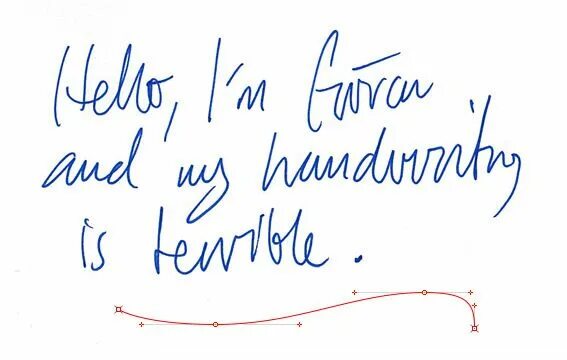 Hello, I'm Göran
and my handwriting
is terrible.